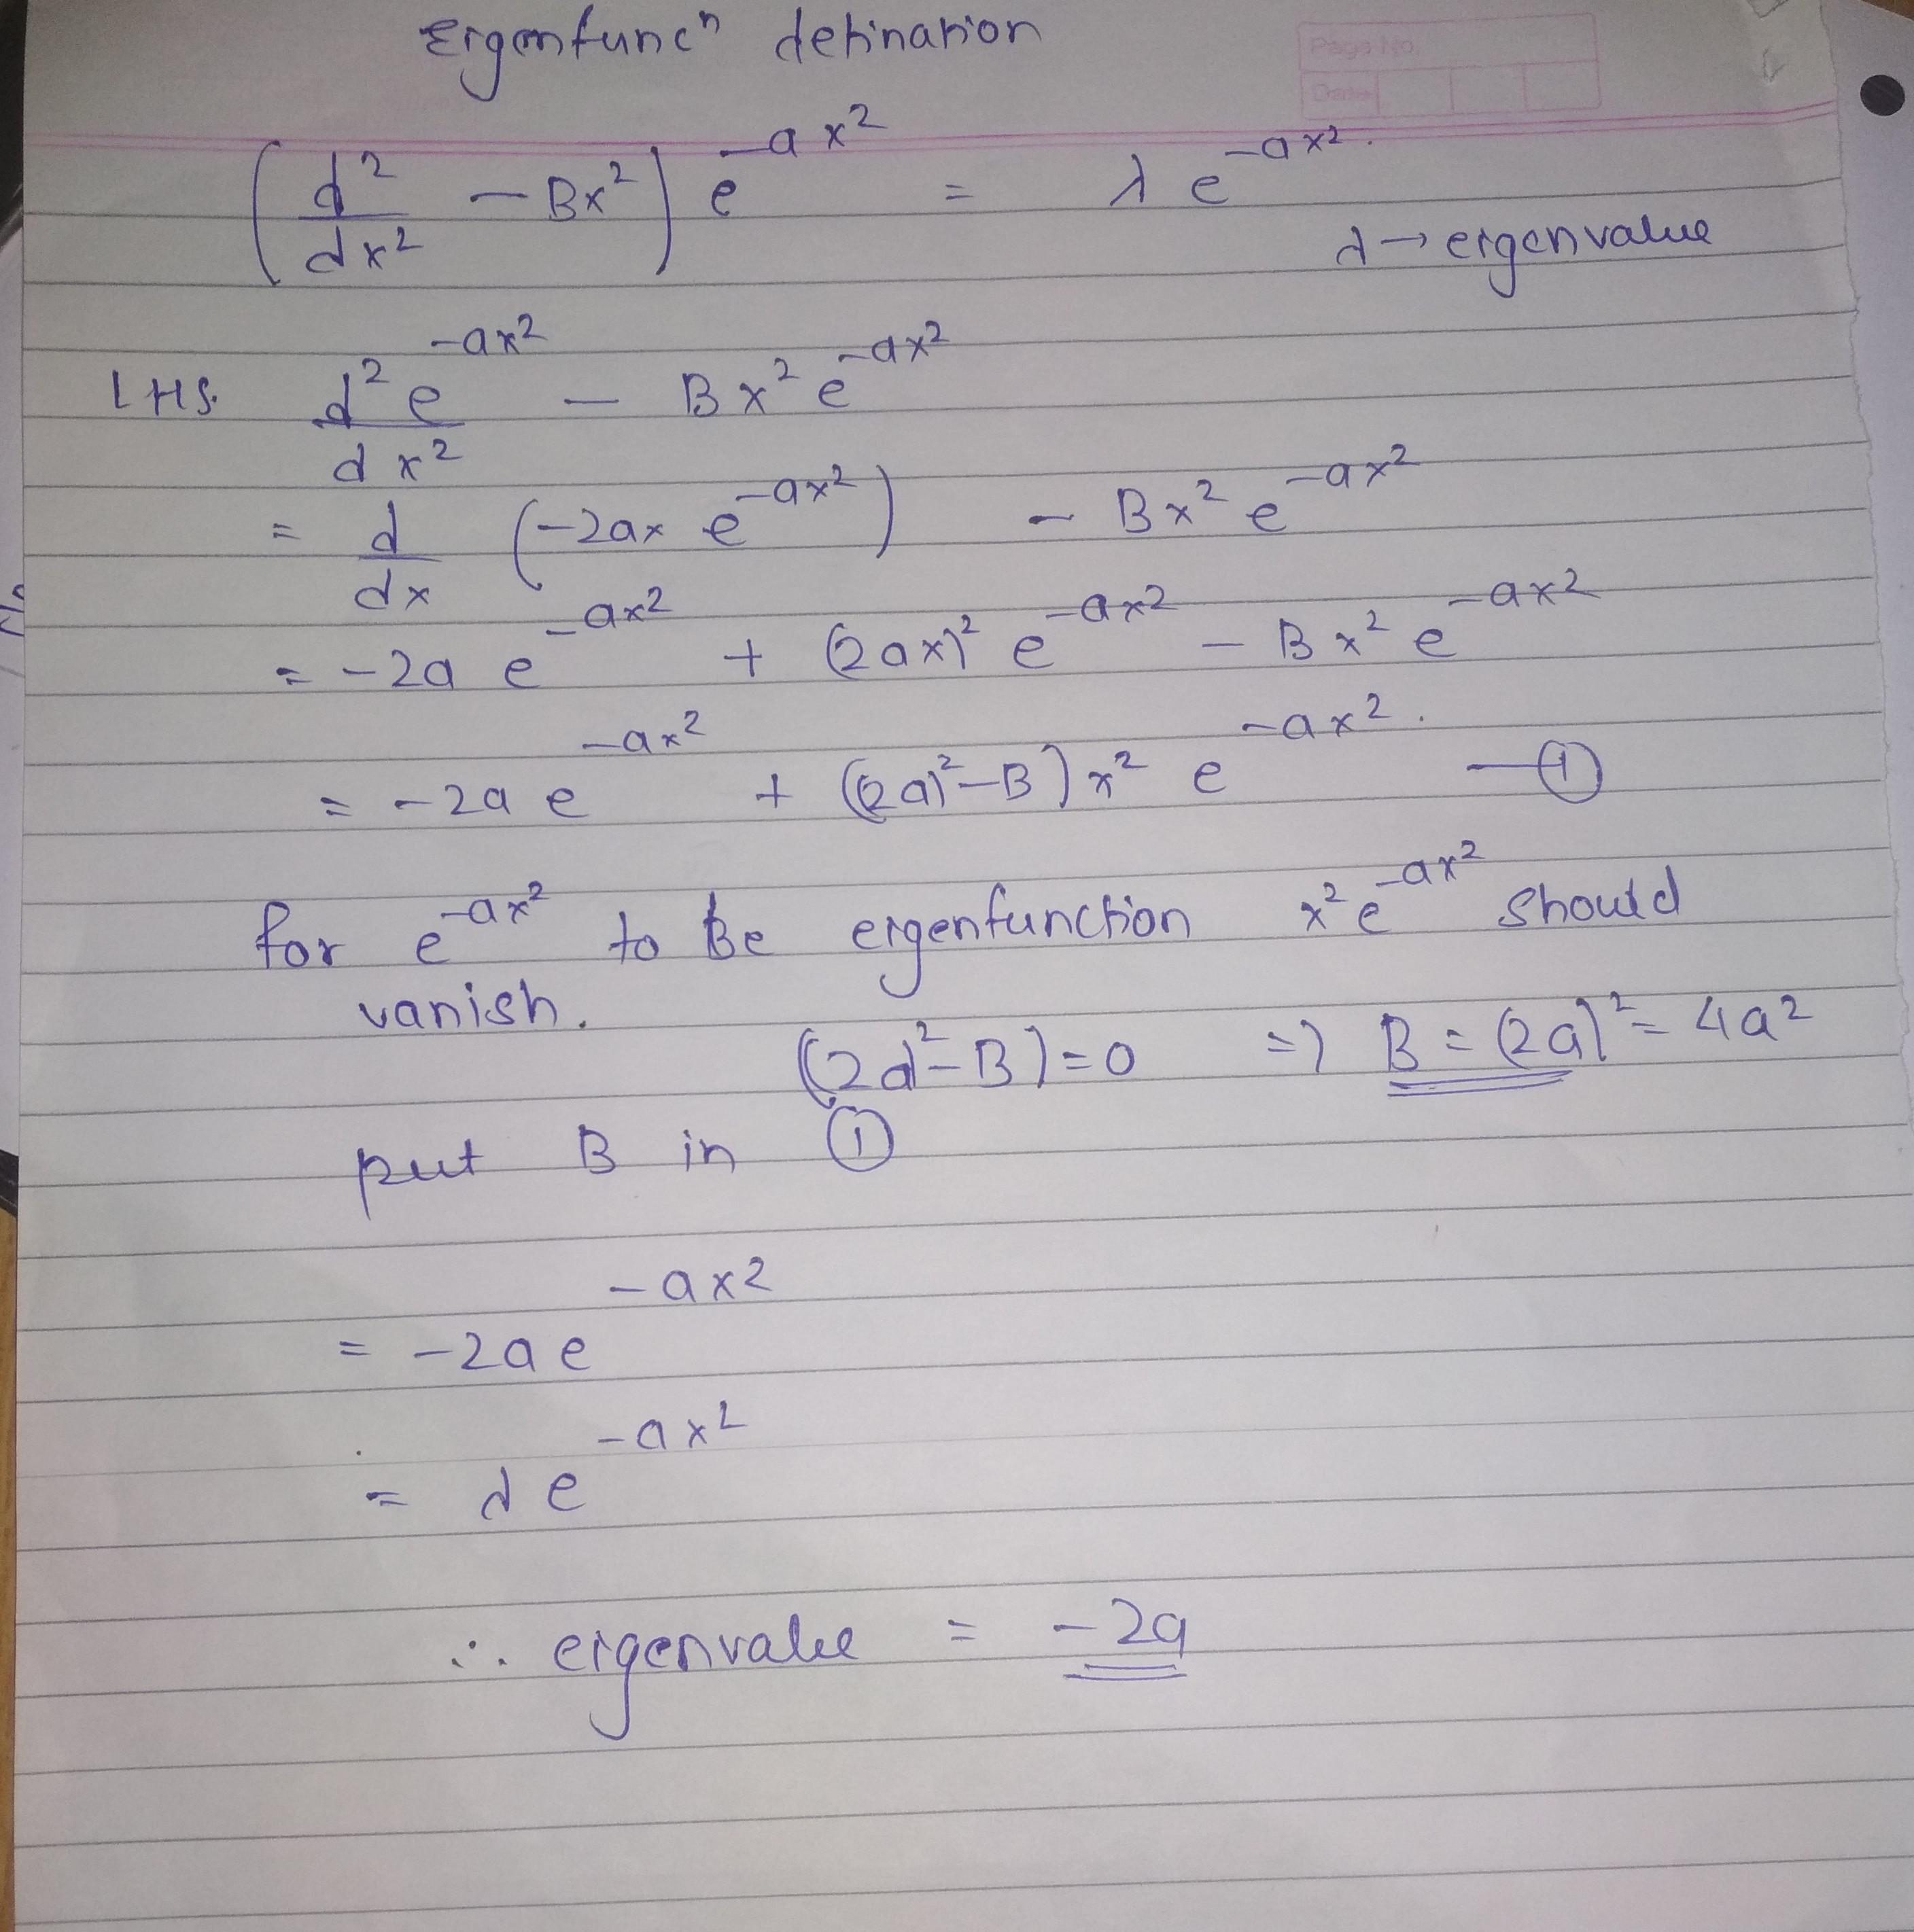 Eigenfuncⁿ defination
Page No.
Date
(d²/dx² - Bx²) e^(-ax²) = λ e^(-ax²).
λ → eigenvalue
LHS. d² e^(-ax²)/dx² - Bx² e^(-ax²)
= d/dx (-2ax e^(-ax²)) - Bx² e^(-ax²)
= -2a e^(-ax²) + (2ax)² e^(-ax²) - Bx² e^(-ax²)
= -2a e^(-ax²) + ((2a)² - B) x² e^(-ax²). — ①
for e^(-ax²) to Be eigenfunction x² e^(-ax²) should
vanish.
((2a)² - B) = 0 => B = (2a)² = 4a²
put B in ①
= -2a e^(-ax²)
= λ e^(-ax²)
∴ eigenvalue = -2a